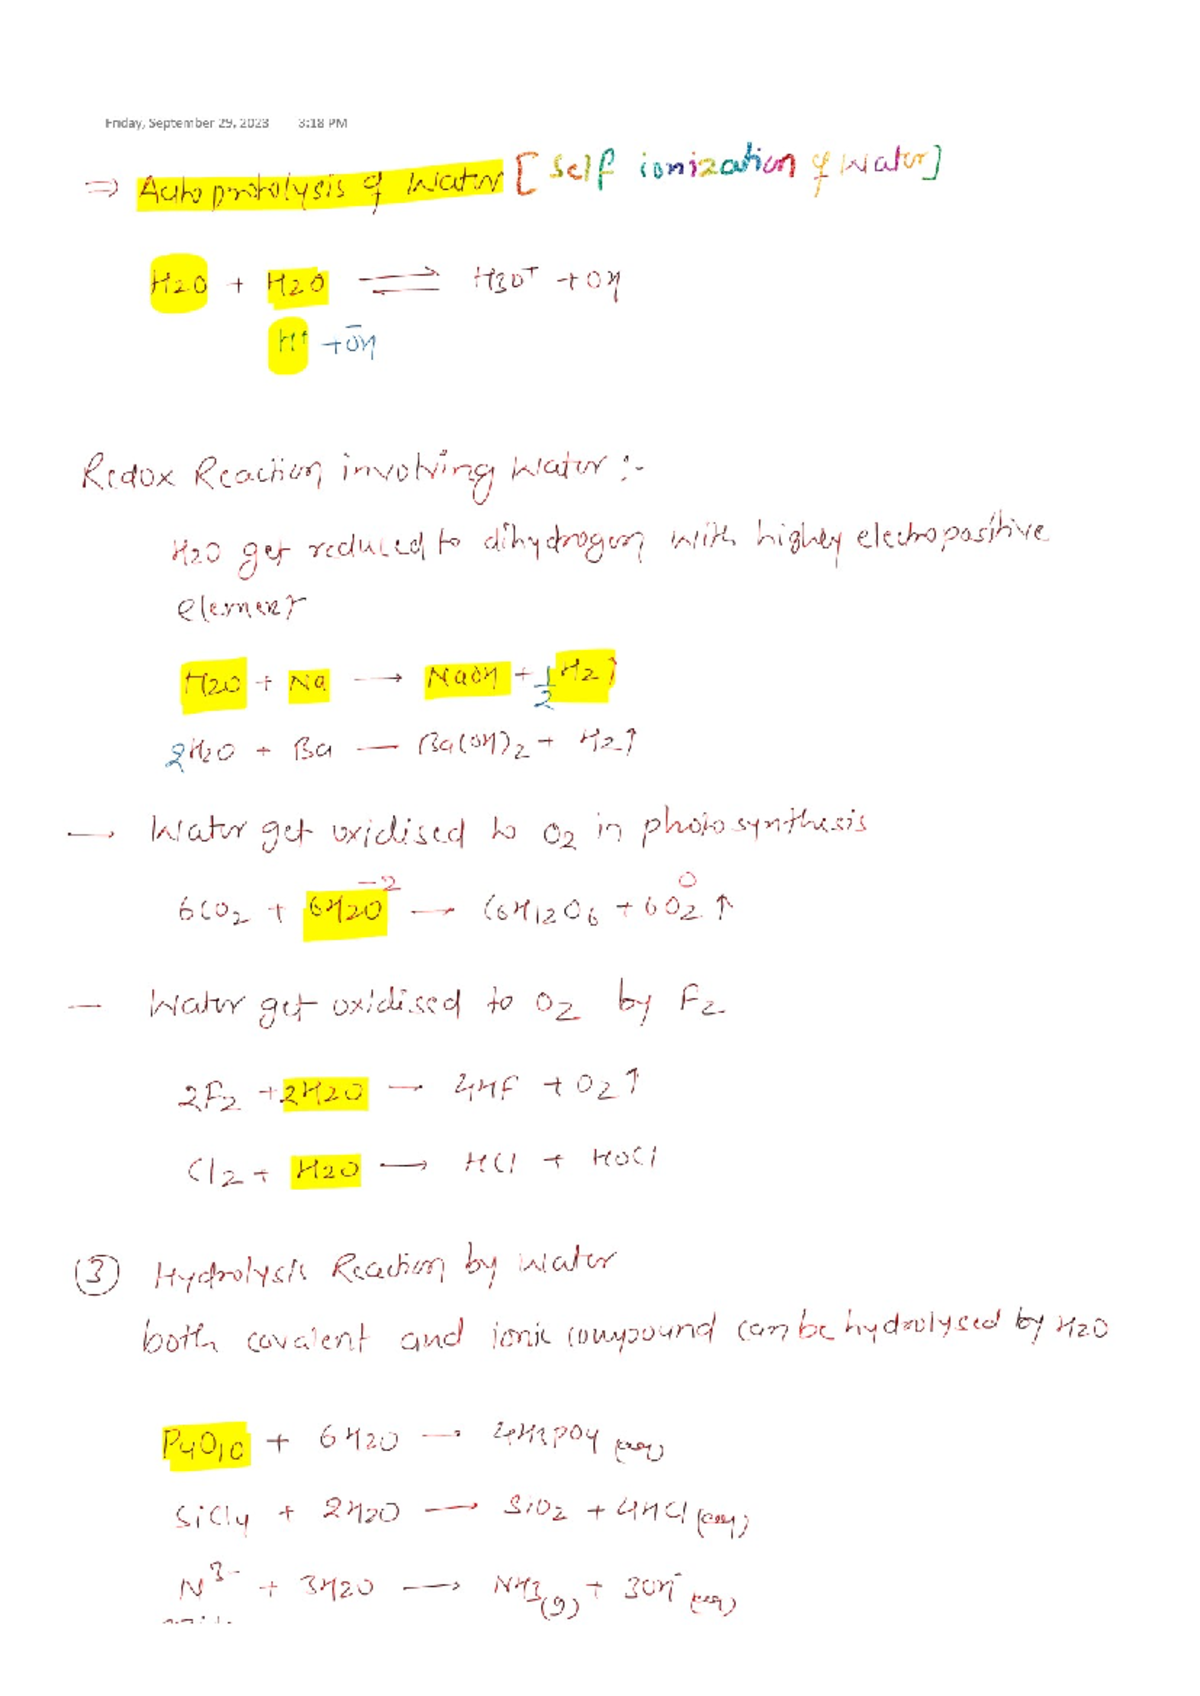 Friday, September 29, 2023 3:18 PM
⇒ Autoprotolysis of Water [Self ionization of Water]
H2O + H2O ⇌ H3O+ + OH
H+ + OH-
Redox Reaction involving Water :-
H2O get reduced to dihydrogen with highly electropositive
element
H2O + Na → NaOH + 1/2 H2↑
2H2O + Ba — Ba(OH)2 + H2↑
→ Water get oxidised to O2 in photosynthesis
-2 0
6CO2 + 6H2O → C6H12O6 + 6O2 ↑
— Water get oxidised to O2 by F2
2F2 + 2H2O → 4HF + O2↑
Cl2 + H2O → HCl + HOCl
(3) Hydrolysis Reaction by Water
both covalent and ionic compound can be hydrolysed by H2O
P4O10 + 6H2O → 4H3PO4 (aq)
SiCl4 + 2H2O → SiO2 + 4HCl (aq)
N3- + 3H2O → NH3(g) + 3OH- (aq)